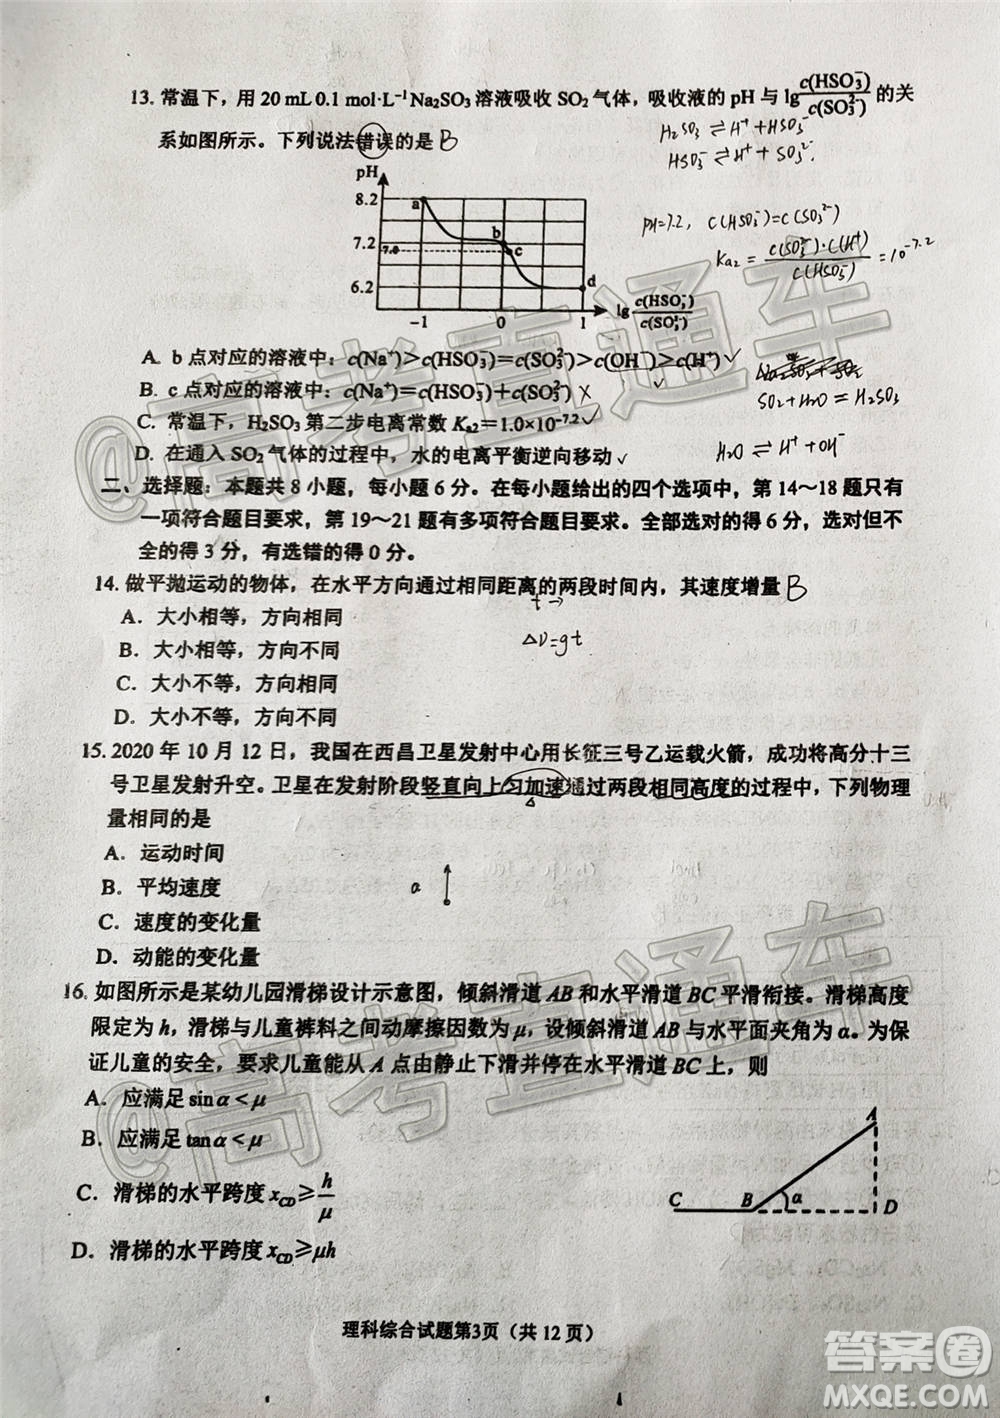 13. 常温下，用 20 mL 0.1 mol·L⁻¹ Na₂SO₃ 溶液吸收 SO₂ 气体，吸收液的 pH 与 lg c(HSO₃⁻)/c(SO₃²⁻) 的关
系如图所示。下列说法错误的是 B
H₂SO₃ ⇌ H⁺ + HSO₃⁻
HSO₃⁻ ⇌ H⁺ + SO₃²⁻
pH
8.2
7.2
7.0
6.2
a
b
c
d
-1
0
1
lg c(HSO₃⁻)/c(SO₃²⁻)
pH=7.2, c(HSO₃⁻)=c(SO₃²⁻)
Ka₂ = c(SO₃²⁻)·c(H⁺)/c(HSO₃⁻) = 10⁻⁷·²
A. b 点对应的溶液中：c(Na⁺)>c(HSO₃⁻)=c(SO₃²⁻)>c(OH⁻)>c(H⁺) ✓
B. c 点对应的溶液中：c(Na⁺)=c(HSO₃⁻)+c(SO₃²⁻) ×
SO₂+H₂O=H₂SO₃
C. 常温下，H₂SO₃ 第二步电离常数 Ka₂=1.0×10⁻⁷·² ✓
D. 在通入 SO₂ 气体的过程中，水的电离平衡逆向移动 ✓
H₂O ⇌ H⁺ + OH⁻
二、选择题：本题共 8 小题，每小题 6 分。在每小题给出的四个选项中，第 14～18 题只有
一项符合题目要求，第 19～21 题有多项符合题目要求。全部选对的得 6 分，选对但不
全的得 3 分，有选错的得 0 分。
14. 做平抛运动的物体，在水平方向通过相同距离的两段时间内，其速度增量 B
t→
A．大小相等，方向相同
ΔV=gt
B．大小相等，方向不同
C．大小不等，方向相同
D．大小不等，方向不同
15. 2020 年 10 月 12 日，我国在西昌卫星发射中心用长征三号乙运载火箭，成功将高分十三
号卫星发射升空。卫星在发射阶段竖直向上匀加速通过两段相同高度的过程中，下列物理
量相同的是
A．运动时间
B．平均速度
a
C．速度的变化量
D．动能的变化量
16. 如图所示是某幼儿园滑梯设计示意图，倾斜滑道 AB 和水平滑道 BC 平滑衔接。滑梯高度
限定为 h，滑梯与儿童裤料之间动摩擦因数为 μ，设倾斜滑道 AB 与水平面夹角为 α。为保
证儿童的安全，要求儿童能从 A 点由静止下滑并停在水平滑道 BC 上，则
A．应满足 sinα<μ
B．应满足 tanα<μ
C．滑梯的水平跨度 x_CD ≥ h/μ
D．滑梯的水平跨度 x_CD ≥ μh
A
C
B
α
D
理科综合试题第3页（共 12 页）
@高考直通车
@高考直通车
答案圈
MXQE.COM